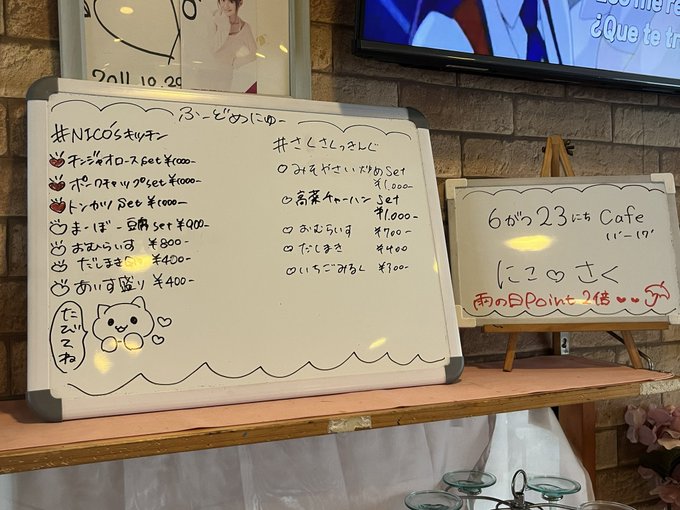 2011.10.29
¿Que te tr
ふーどめにゅー
#NICO'sキッチン
チンジャオロースset ¥1000-
ポークチャップset ¥1000-
トンカツ set ¥1000-
まーぼー豆腐set ¥900-
おむらいす ¥800-
だしまき ¥400-
あいす盛り ¥400-
たべてね
#さくさくっきんぐ
みそやさい炒めset
¥1,000-
高菜チャーハン set
¥1,000-
おむらいす ¥700-
だしまき ¥400
いちごみるく ¥300-
6がつ23にち Cafe
11'-17'
にこ♡さく
雨の日Point 2倍♥♥